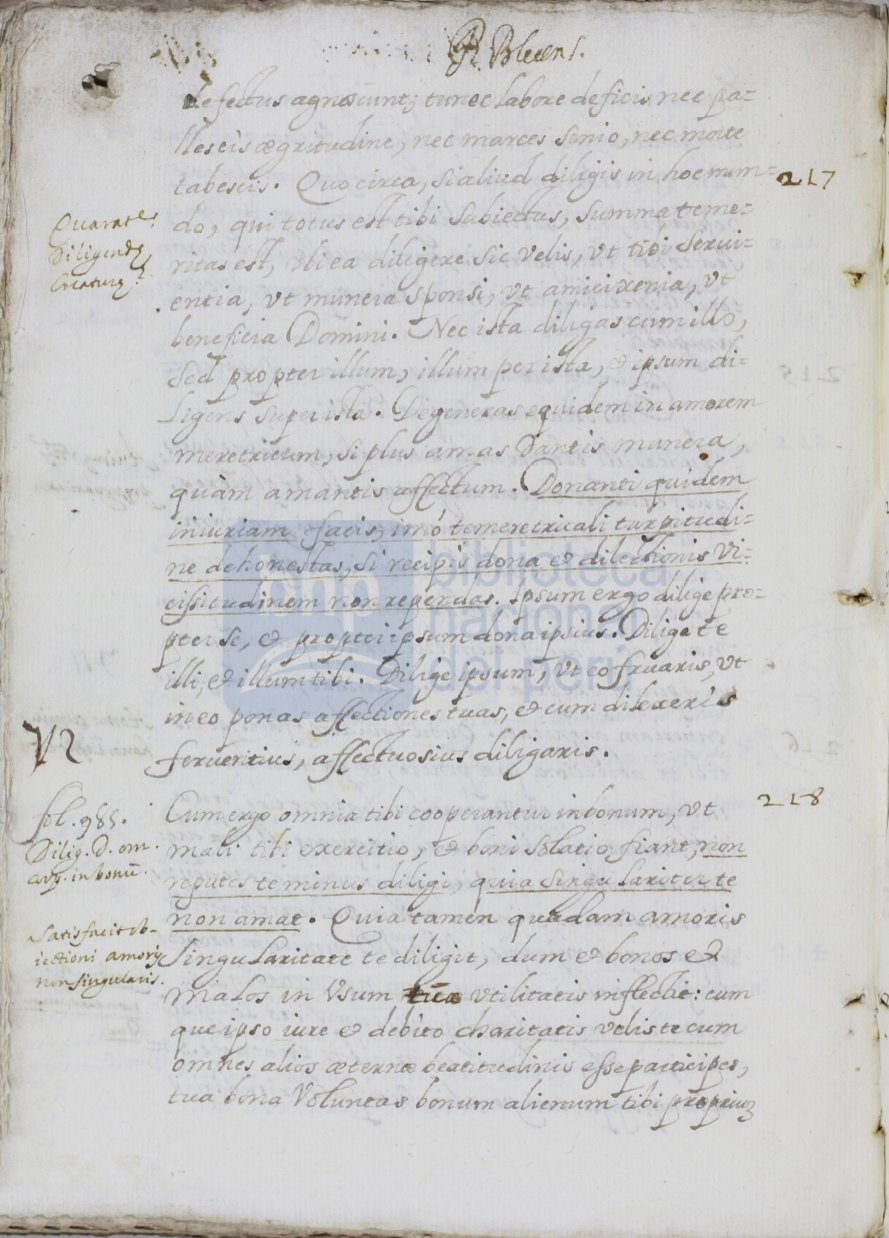 P. Blesens.
defectus agnoscunt; tu nec labore deficis, nec pa-
llescis ægritudine, nec marces senio, nec morte
tabescis. Quocirca, si aliud diligis in hoc mun-
217
do, qui totus est tibi subiectus, summa teme-
ritas est, ubi ea diligere sic velis, vt tibi servi-
entia, vt munera sponsi, vt amici xenia, vt
beneficia Domini. Nec ista diligas cum illo,
sed propter illum, illum per ista, & ipsum di-
ligens super ista. Degeneras equidem in amorem
meretricium, si plus amas dantis munera,
quàm amantis affectum. Donanti quidem
iniuriam facis, imó te meretricali turpitudi-
ne dehonestas, si recipis dona & dilectionis vi-
cissitudinem non rependas. Ipsum ergo dilige pro-
pter se, & propter ipsum dona ipsius. Diliga te
illi, & illum tibi. Dilige ipsum, vt eo fruaris, vt
in eo ponas affectiones tuas, & cum dilexeris
ferventius, affectuosius diligaris.
Diligendę
Creaturę.
218
Cum ergo omnia tibi cooperantur in bonum, vt
mali tibi exercitio, & boni solatio fiant, non
reputes te minus diligi, quia singulariter te
non amat. Quia tamen quadam amoris
singularitate te diligit, dum & bonos et
malos in vsum tuæ vtilitatis inflectit: cum
que ipso iure & debito charitatis velis tecum
omnes alios æternæ beatitudinis esse participes,
tua bona Voluntas bonum alienum tibi propriuȝ
fol. 985.
Dilig. D. om.
in bonũ.
Satisfacit ob-
iectioni amoris
non singularis.